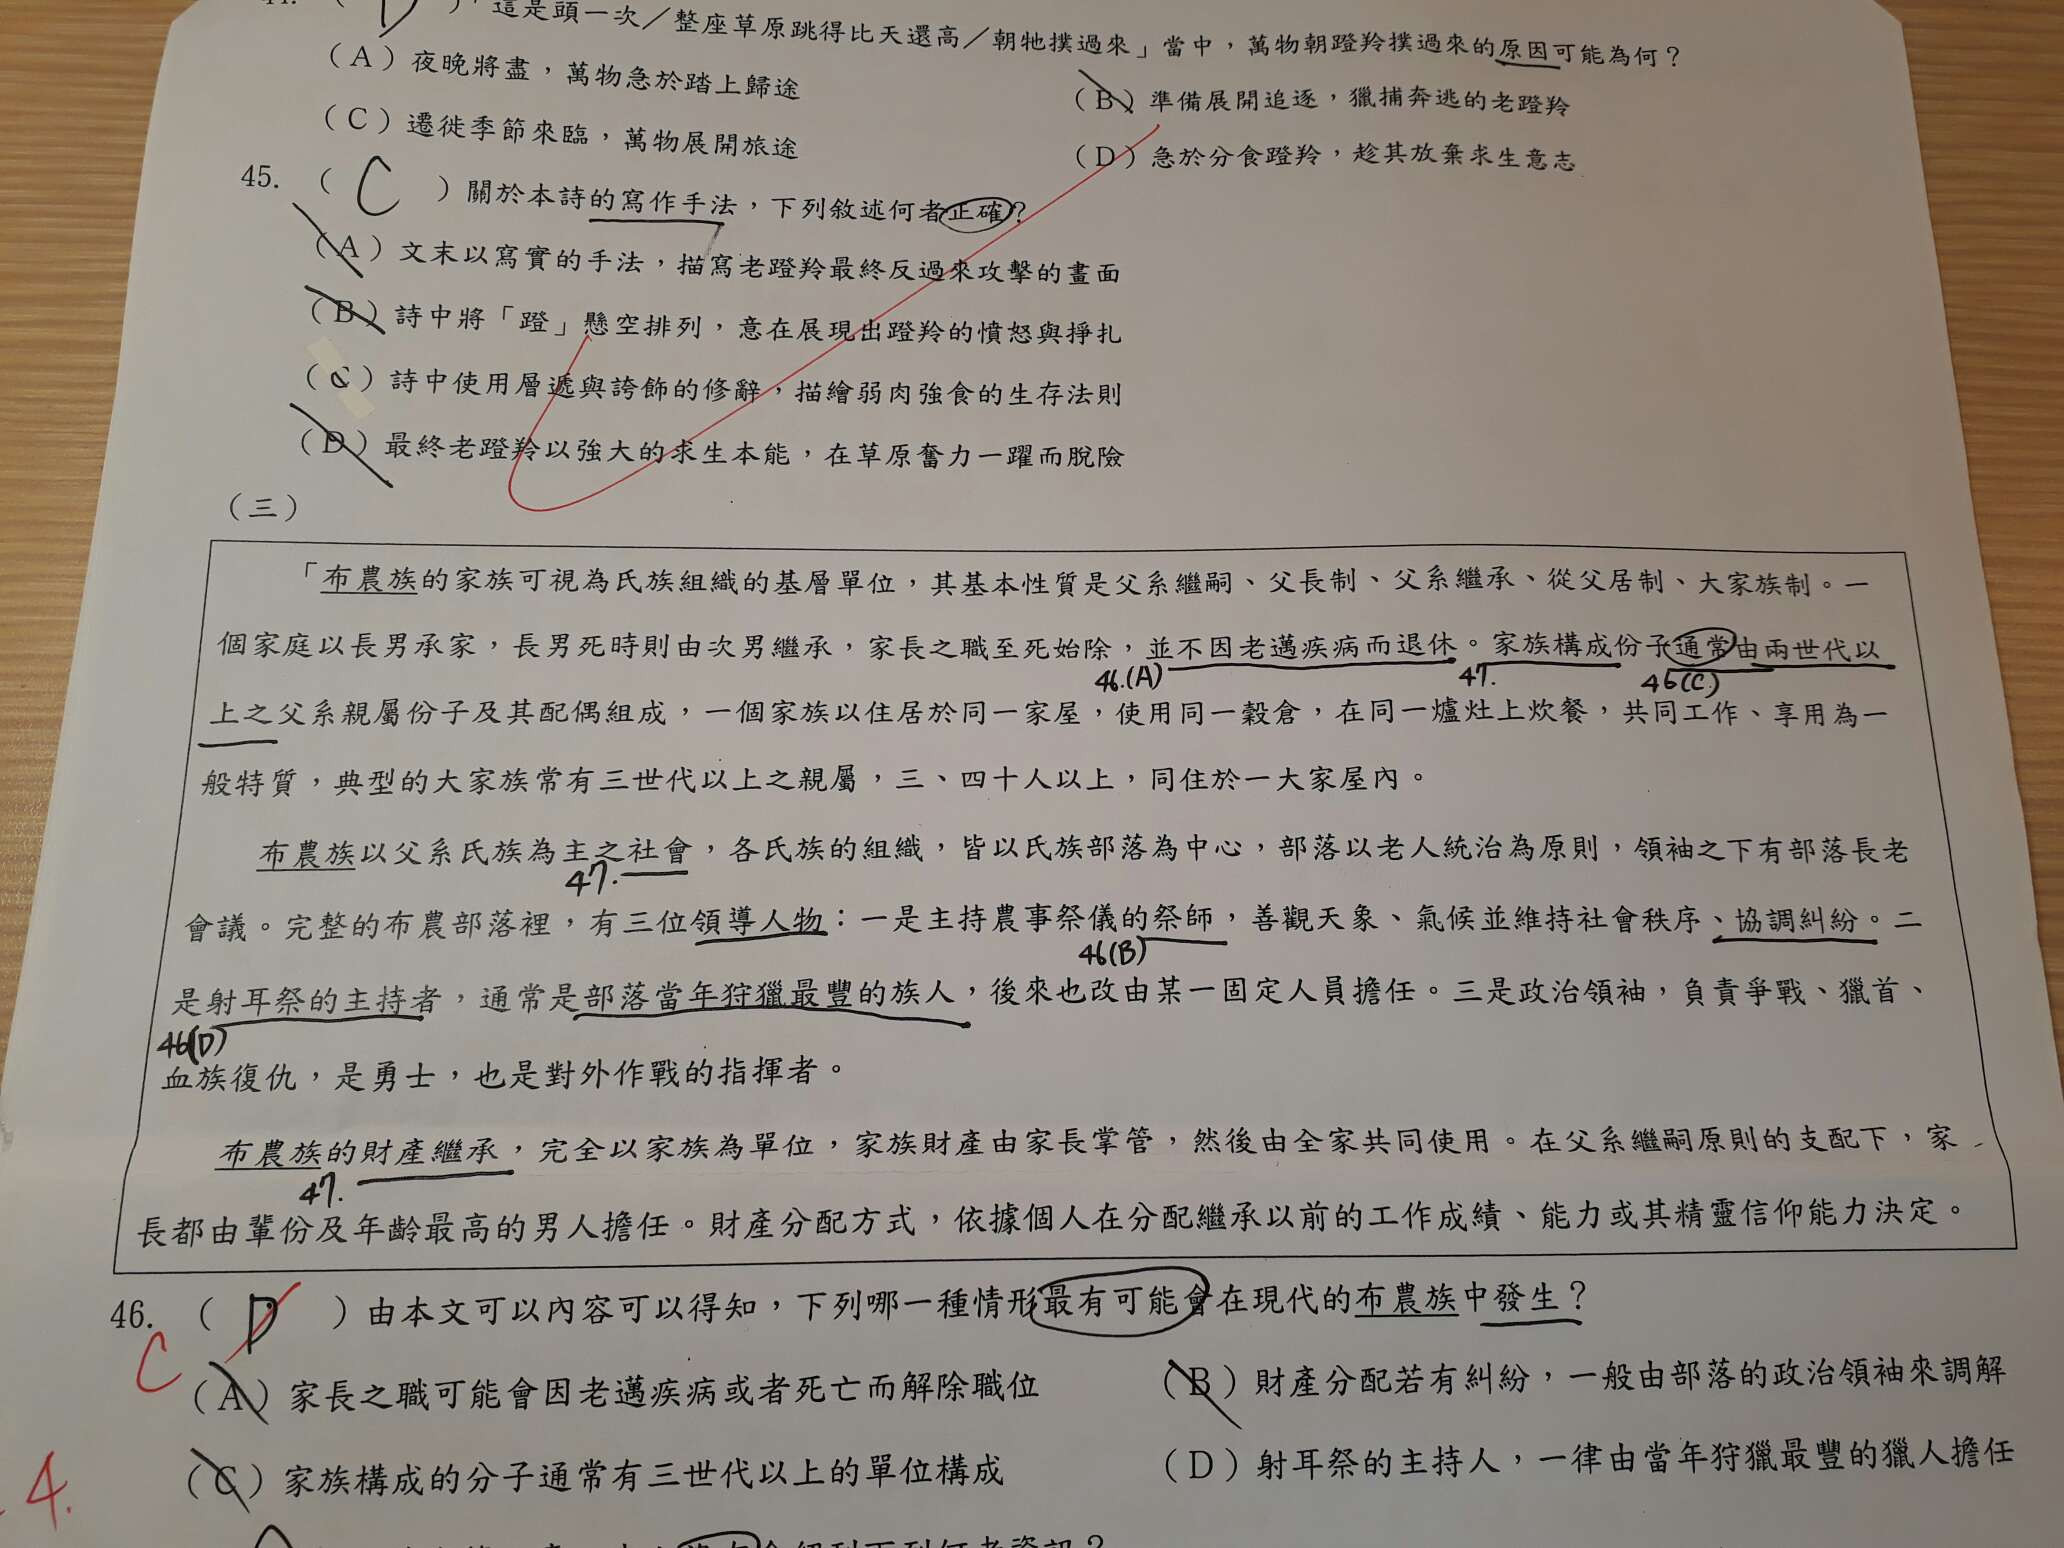 44. ( D )「這是頭一次／整座草原跳得比天還高／朝牠撲過來」當中，萬物朝蹬羚撲過來的原因可能為何？
(A) 夜晚將盡，萬物急於踏上歸途
(B) 準備展開追逐，獵捕奔逃的老蹬羚
(C) 遷徙季節來臨，萬物展開旅途
(D) 急於分食蹬羚，趁其放棄求生意志
45. ( C ) 關於本詩的寫作手法，下列敘述何者正確？
(A) 文末以寫實的手法，描寫老蹬羚最終反過來攻擊的畫面
(B) 詩中將「蹬」懸空排列，意在展現出蹬羚的憤怒與掙扎
(C) 詩中使用層遞與誇飾的修辭，描繪弱肉強食的生存法則
(D) 最終老蹬羚以強大的求生本能，在草原奮力一躍而脫險
（三）
「布農族的家族可視為氏族組織的基層單位，其基本性質是父系繼嗣、父長制、父系繼承、從父居制、大家族制。一
個家庭以長男承家，長男死時則由次男繼承，家長之職至死始除，並不因老邁疾病而退休。家族構成份子通常由兩世代以
46.(A) 47. 46(C)
上之父系親屬份子及其配偶組成，一個家族以住居於同一家屋，使用同一穀倉，在同一爐灶上炊餐，共同工作、享用為一
般特質，典型的大家族常有三世代以上之親屬，三、四十人以上，同住於一大家屋內。
布農族以父系氏族為主之社會，各氏族的組織，皆以氏族部落為中心，部落以老人統治為原則，領袖之下有部落長老
47.
會議。完整的布農部落裡，有三位領導人物：一是主持農事祭儀的祭師，善觀天象、氣候並維持社會秩序、協調糾紛。二
46(B)
是射耳祭的主持者，通常是部落當年狩獵最豐的族人，後來也改由某一固定人員擔任。三是政治領袖，負責爭戰、獵首、
46(D)
血族復仇，是勇士，也是對外作戰的指揮者。
布農族的財產繼承，完全以家族為單位，家族財產由家長掌管，然後由全家共同使用。在父系繼嗣原則的支配下，家
47.
長都由輩份及年齡最高的男人擔任。財產分配方式，依據個人在分配繼承以前的工作成績、能力或其精靈信仰能力決定。
46. ( D ) 由本文可以內容可以得知，下列哪一種情形最有可能會在現代的布農族中發生？
C
(A) 家長之職可能會因老邁疾病或者死亡而解除職位
(B) 財產分配若有糾紛，一般由部落的政治領袖來調解
(C) 家族構成的分子通常有三世代以上的單位構成
(D) 射耳祭的主持人，一律由當年狩獵最豐的獵人擔任
4.